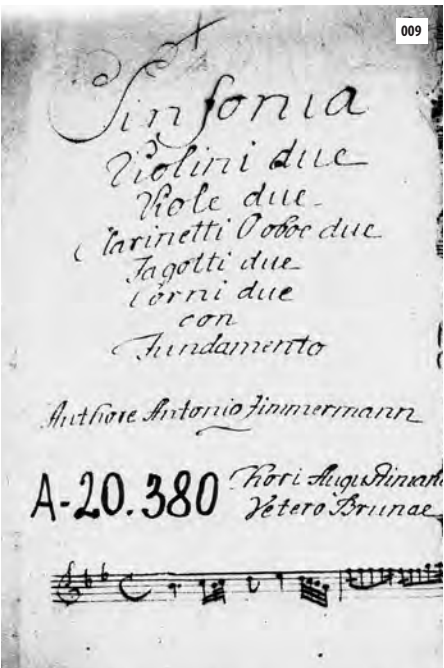 009
Sinfonia
Violini due
Viole due
Clarinetti O oboe due
Fagotti due
Corni due
con
Fundamento
Authore Antonio Zimmermann
A-20.380
Chori Augustiniani
Vetero Brunae